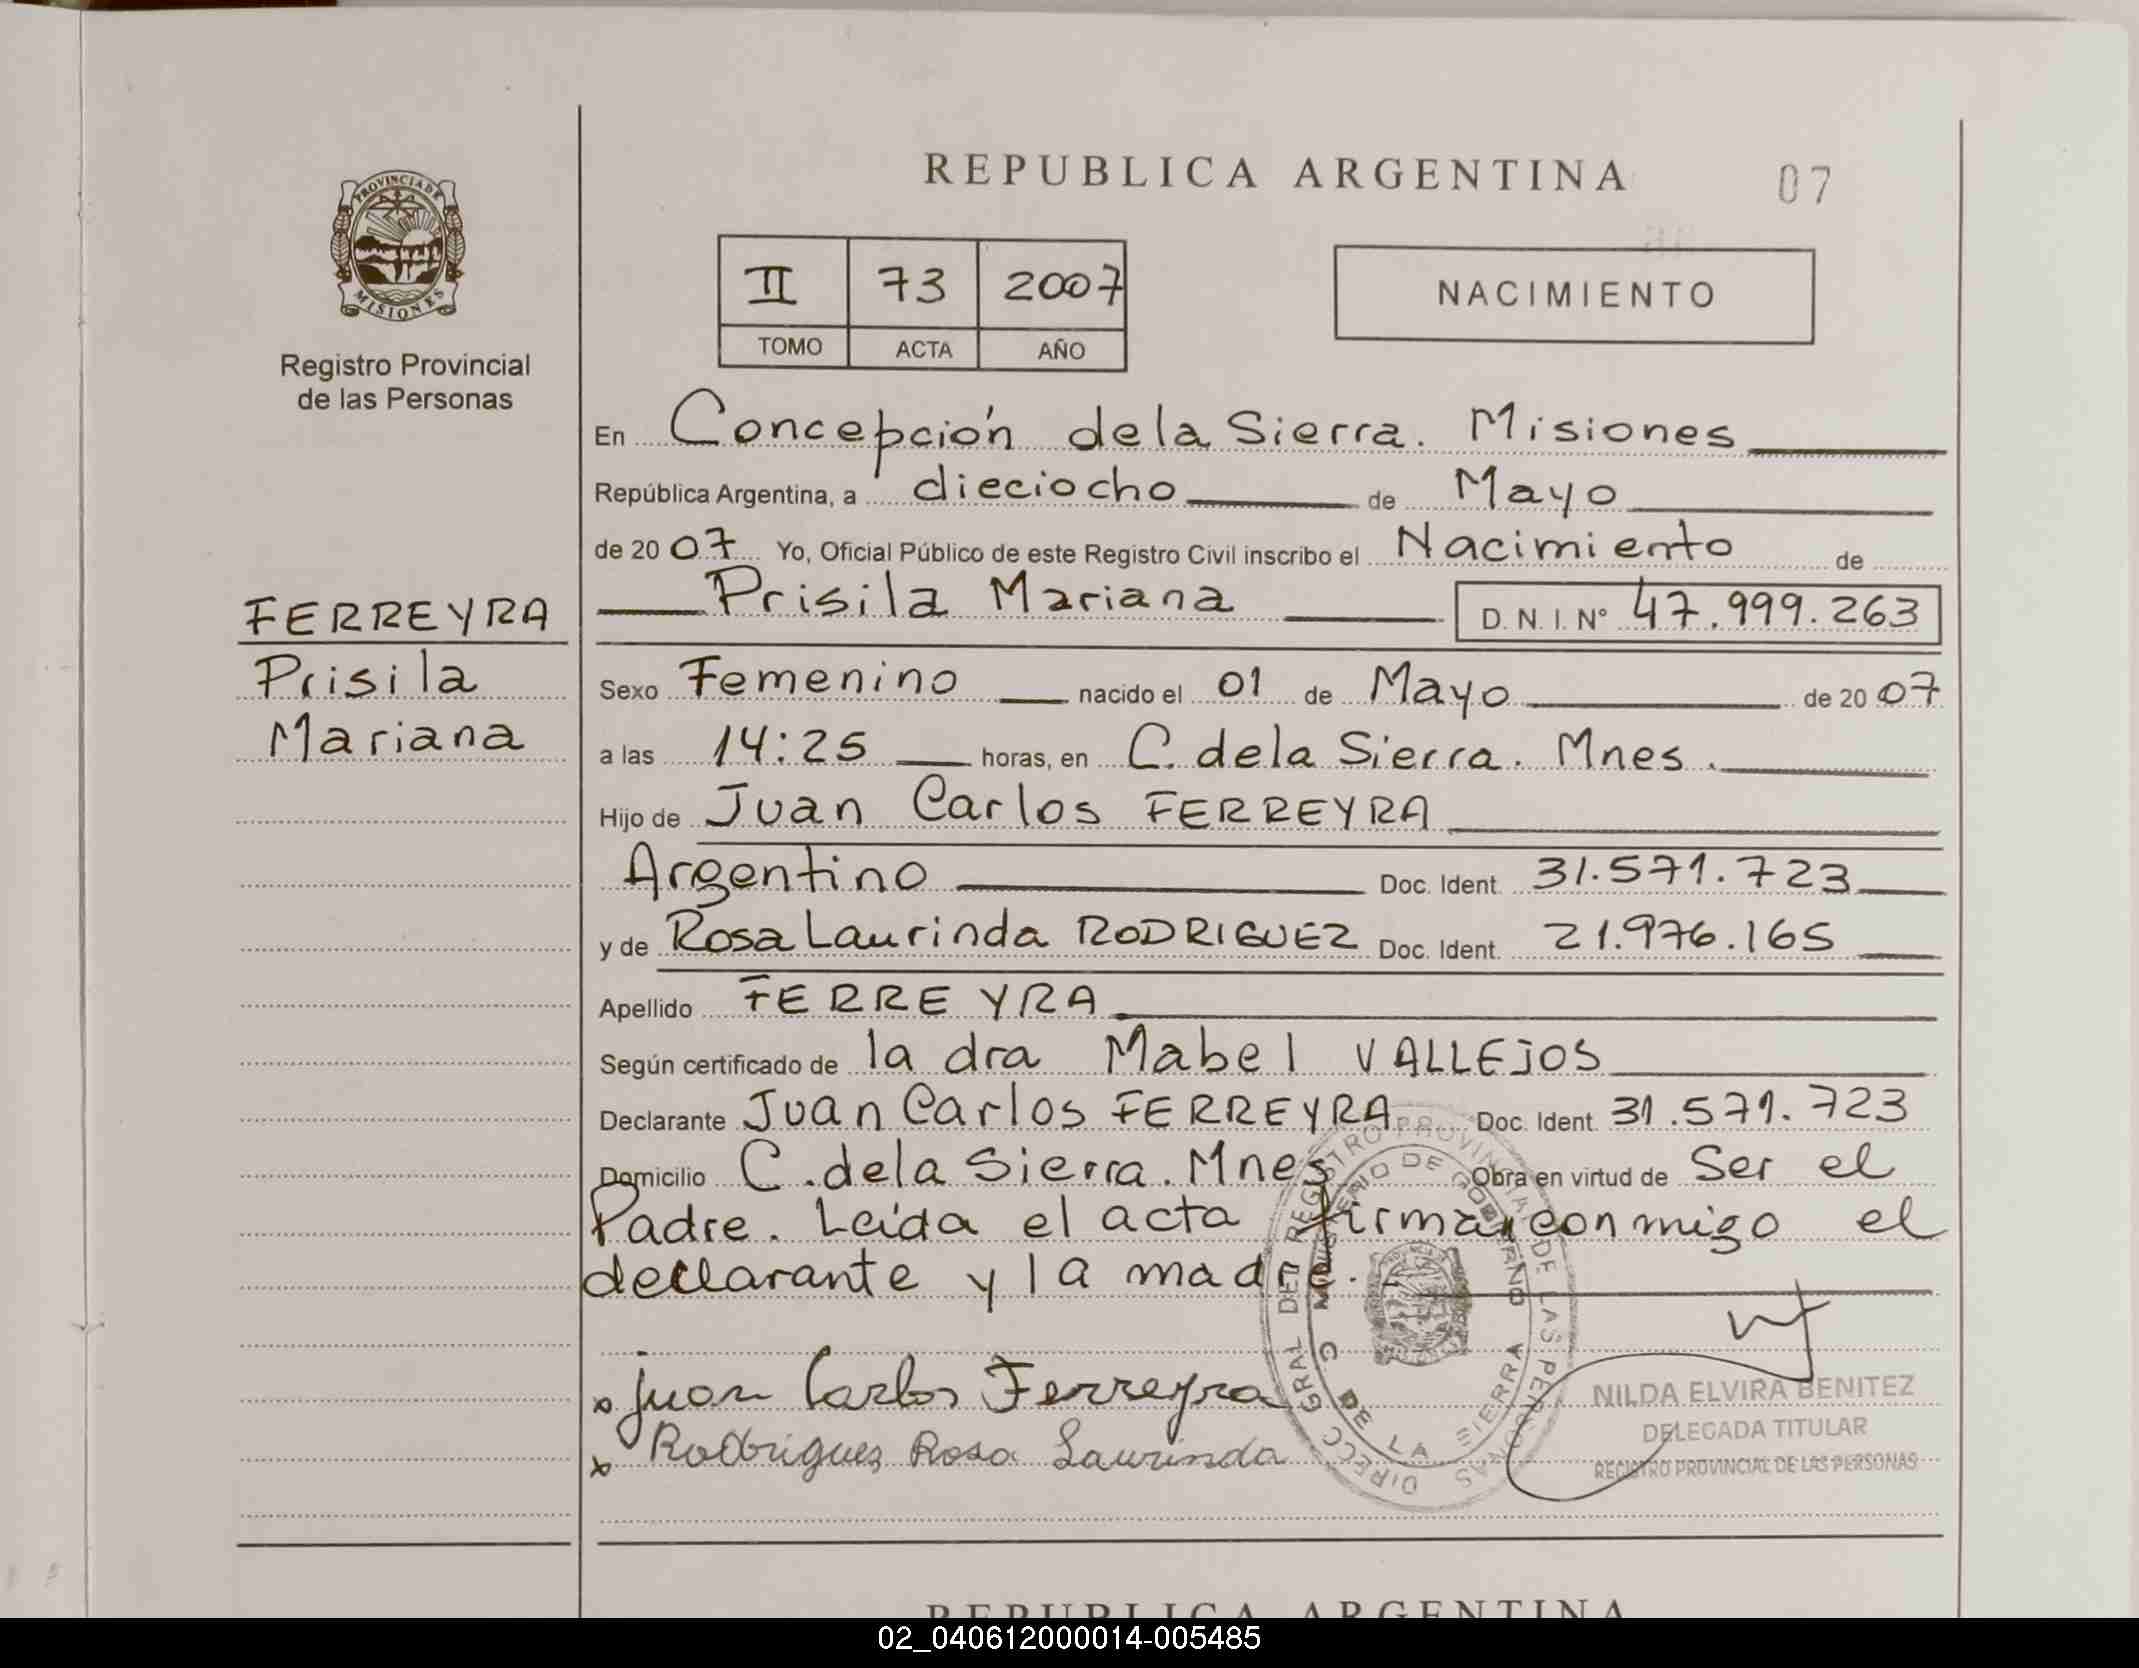 REPUBLICA ARGENTINA
07
PROVINCIA DE
MISIONES
Registro Provincial
de las Personas
II 73 2007
TOMO ACTA AÑO
NACIMIENTO
En Concepción de la Sierra. Misiones
República Argentina, a dieciocho de Mayo
de 2007 Yo, Oficial Público de este Registro Civil inscribo el Nacimiento de
Prisila Mariana D. N. I. Nº 47.999.263
FERREYRA
Prisila
Mariana
Sexo Femenino nacido el 01 de Mayo de 2007
a las 14:25 horas, en C. de la Sierra. Mnes.
Hijo de Juan Carlos FERREYRA
Argentino Doc. Ident. 31.571.723
y de Rosa Laurinda RODRIGUEZ Doc. Ident. 21.976.165
Apellido FERREYRA
Según certificado de la dra Mabel VALLEJOS
Declarante Juan Carlos FERREYRA Doc. Ident. 31.571.723
Domicilio C. de la Sierra. Mnes Obra en virtud de Ser el
Padre. Leída el acta firman conmigo el
declarante y la madre.
DIRECC GRAL DEL REGISTRO PROVINCIAL DE LAS PERSONAS
MINISTERIO DE GOBIERNO
C DE LA SIERRA
x Juan Carlos Ferreyra
x Rodriguez Rosa Laurinda
NILDA ELVIRA BENITEZ
DELEGADA TITULAR
REGISTRO PROVINCIAL DE LAS PERSONAS
REPUBLICA ARGENTINA
02_040612000014-005485